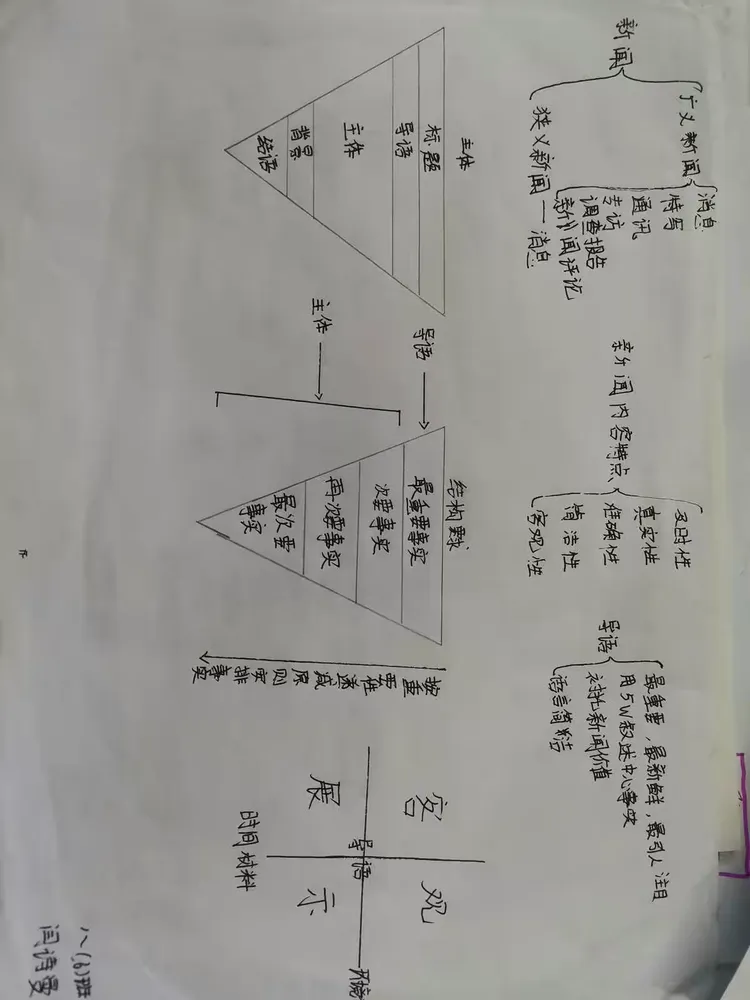 新闻
广义新闻
消息
特写
通讯
专访
调查报告
新闻评论
狭义新闻 — 消息
新闻内容特点
及时性
真实性
准确性
简洁性
客观性
导语
最重要,最新鲜,最引人注目
用5W叙述中心事实
衬托新闻价值
语言简洁
主体
标题
导语
主体
背景
结语
导语
主体
最重要事实
次要事实
再次要事实
最次要
事实
按重
要性
递减
原则
安排
事实
客观
展示
导语
环境
时间材料
八(6)班
闫诗曼